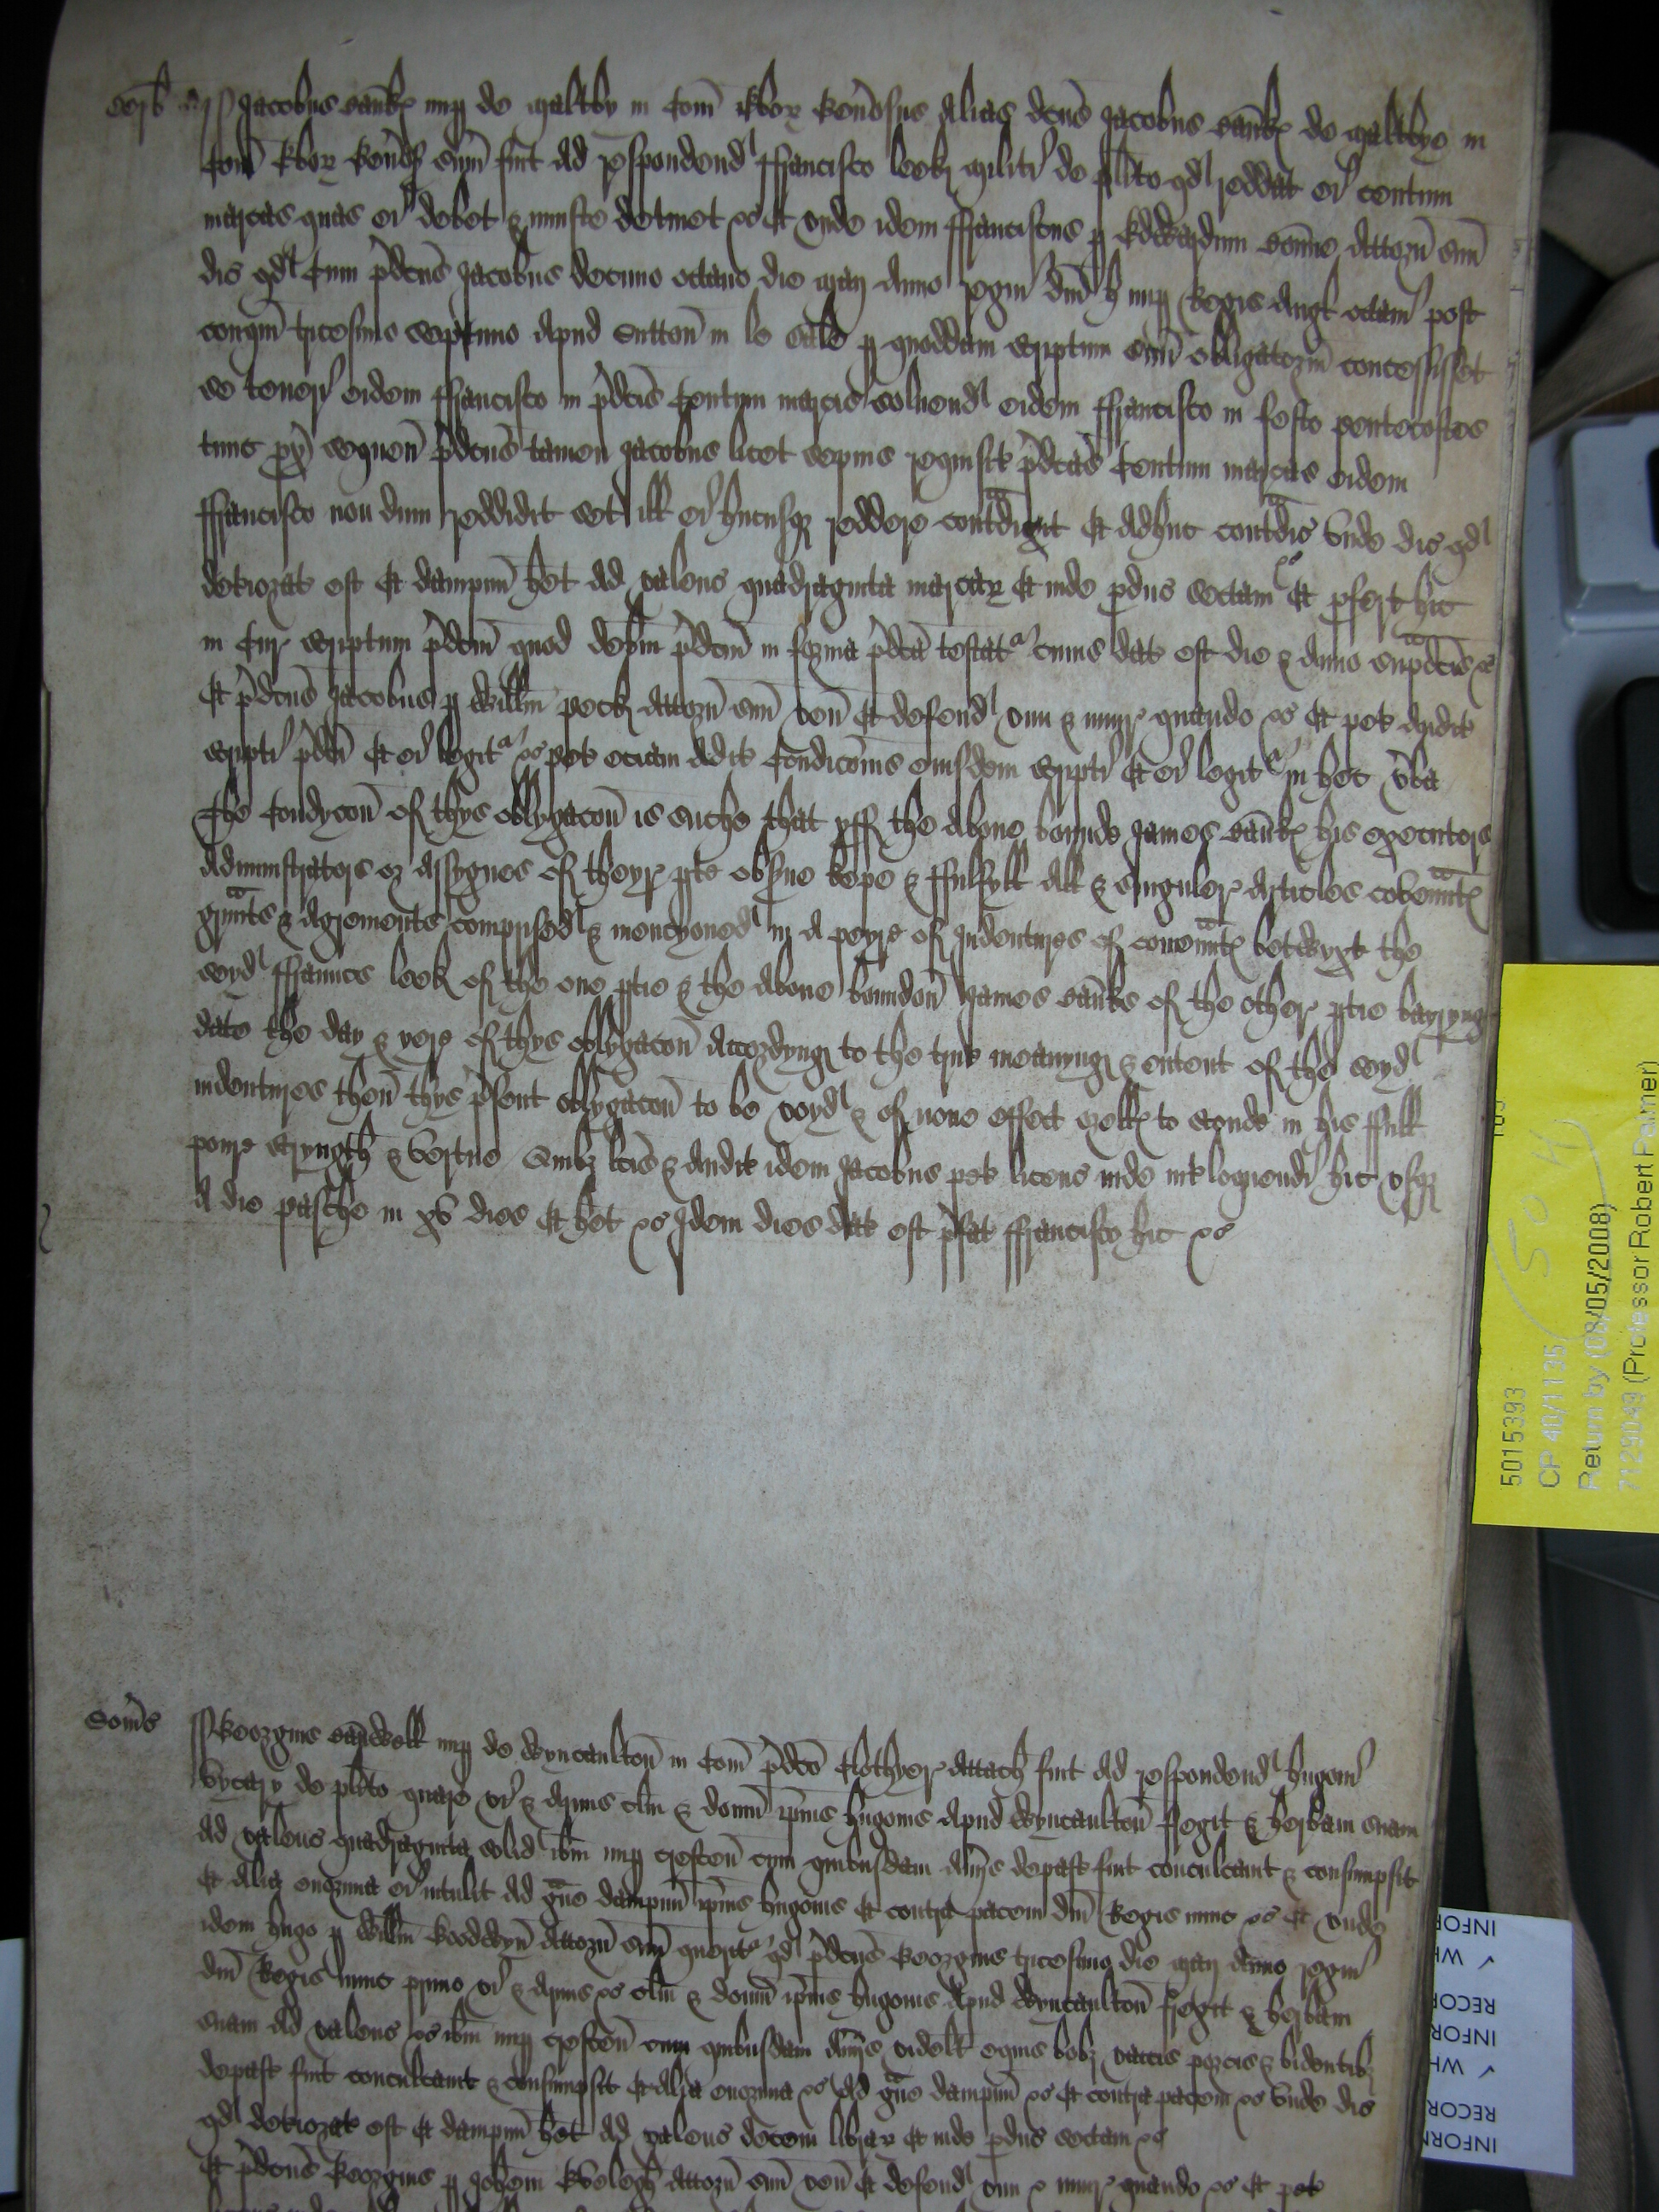 Derb ss Jacobus Bankℯ nup de Maltby in Com̄ Ebor Gen̄osus alias dcūs Jacobus Bankℯ de Maltbye in
Com̄ Ebor Gen̄os sum̄ fuit ad respondend ffrancisco leek militi de pl̄ito qd reddat ei Centum
marcas quas ei debet & iniuste detinet &c Et vnde idem ffranciscus p Edwardum attorn̄ sum̄
dic̄ qd Cum p̄dcūs Jacobus decimo octauo die Maij anno regni dn̄i H nup Regis Angl octaui post
conqm̄ tricesimo septimo apud Sutton̄ in le Dale p quoddam scriptum sum̄ obligatorm̄ concessisset
se teneri eidem ffrancisco in p̄dcīs Centum marcis soluend eidem ffrancisco in festo pentecostes
tunc px̄ sequen̄ p̄dcūs tamen Jacobus licet sepius requisit̄ p̄dcās Centum marcas eidem
ffrancisco non dum reddidit set ill ei hucusqȝ reddere contᵃdixit Et adhuc contᵃdic̄ vnde dic̄ qd
det̄iorat̄ est Et dampnū het ad valenc̄ quadraginta marcar̄ Et inde p̄duc̄ sectam &c Et p̄fert hic
in Cur̄ scriptum p̄dcm̄ quod debm̄ p̄dcm̄ in forma p̄dcā testatʳ cuius dat̄ est die & anno sup̄dcīs &c
Et p̄dcūs Jacobus p Willm̄ peck attorn̄ sum̄ ven̄ Et defend vim & iniur̄ quando &c Et pet̄ audit̄
scripti p̄dc̄i Et ei legitʳ &c pet̄ eciam audit̄ Condicōnis eiusdem scripti Et ei legitʳ in hec v̄ba
The Condycōn of thys oblygacōn is suche that yff the aboue bounde James Bankℯ his executors
administrators or assygnes of theyr pte obs̄ue kepe & ffulfyll all & singuler articles couenntℯ
gᵃunts & agrements comprised & mencyoned in a peyre of Indentures of couenntℯ betwyxt the
seyd ffraunces leek of the one ptie & the aboue bounden̄ James Banks of the other ptie beryng
date the day & yere of thys oblygacōn accordyng to the true meanyng & entent of the seyd
indentures then̄ thys p̄sent oblygacōn to be voyd & of none effect or ellℯ to stonde in his ffull
power stryngth & vertue Quibȝ lc̄is & audit̄ idem Jacobus pet̄ licenc̄ inde int̄loquendi hic vsqȝ
a die pasche in xv dies Et het &c Idem dies dat̄ est p̄fat̄ ffrancisco hic &c
Som̄s ss Georgius nup de Wyncaulton̄ in Com̄ p̄dco Clothyer attach fuit ad respondend hugoni
Vycary de pl̄ito quare vi & armis cl̄m & domū ip̄ius hugonis apud Wyncaulton̄ fregit & herbam suam
ad valenc̄ quadraginta solid ib̄m nup crescen̄ cum quibusdam au̅ijs depast̄ fuit conculcauit & consumpsit
Et alia enormia ei intulit ad gᵃue dampnū ip̄ius hugonis Et contra pacem dn̄i Regis nunc &c Et vnde
idem hugo p Willm̄ Goodwyn̄ attorn̄ sum̄ queritʳ qd p̄dcūs Georgius tricesimo die Maij anno regni
dn̄i Regis nunc primo vi & armis &c cl̄m & domū ip̄ius hugonis apud Wyncaulton̄ fregit & herbam
suam ad valenc̄ &c ib̄m nup crescen̄ cum quibusdam au̅ijs videl̄t equis bobȝ vaccis porcis & bidentibȝ
depast̄ fuit conculcauit & consumpsit Et alia enormia &c ad gᵃue dampnū &c Et contra pacem &c vnde dic̄
qd det̄iorat̄ est Et dampnū het ad valenc̄ decem librar̄ Et inde p̄duc̄ sectam &c
Et p̄dcūs Georgius p Johem attorn̄ sum̄ ven̄ Et defend vim & iniur̄ quando &c Et pet̄
5015393
CP 40/1135
Return by (08/05/2008)
7129049 (Professor Robert Palmer)
INFOR
WH
RECOR
INFOR
WH
RECOR
INFORM